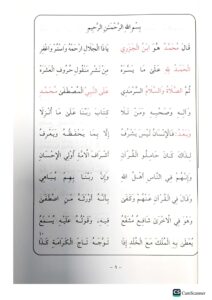 بِسْمِ اللهِ الرَّحْمَنِ الرَّحِيمِ
قَالَ مُحَمَّدٌ هُوَ ابْنُ الْجَزَرِي يَا ذَا الْجَلَالِ ارْحَمْهُ وَاسْتُرْ وَاغْفِرِ
الْحَمْدُ لِلهِ عَلَى مَا يَسَّرَهْ مِنْ نَشْرِ مَنْقُولِ حُرُوفِ الْعَشَرَهْ
ثُمَّ الصَّلَاةُ وَالسَّلَامُ السَّرْمَدِي عَلَى النَّبِيِّ الْمُصْطَفَى مُحَمَّدِ
وَآلِهِ وَصَحْبِهِ وَمَنْ تَلَا كِتَابَ رَبِّنَا عَلَى مَا أَنْزَلَا
وَبَعْدُ فَالْإِنْسَانُ لَيْسَ يَشْرُفُ إِلَّا بِمَا يَحْفَظُهُ وَيَعْرِفُ
لِذَاكَ كَانَ حَامِلُو الْقُرْآنِ أَشْرَافَ الْأُمَّةِ أُولِي الْإِحْسَانِ
وَإِنَّهُمْ فِي النَّاسِ أَهْلُ اللهِ وَإِنَّ رَبَّنَا بِهِمْ يُبَاهِي
وَقَالَ فِي الْقُرْآنِ عَنْهُمْ وَكَفَى بِأَنَّهُ أَوْرَثَهُ مَنِ اصْطَفَى
وَهْوَ فِي الْأُخْرَى شَافِعٌ مُشَفَّعُ فِيهِ وَقَوْلُهُ عَلَيْهِ يُسْمَعُ
يُعْطَى بِهِ الْمُلْكَ مَعَ الْخُلْدِ إِذَا تَوَّجَهُ تَاجَ الْكَرَامَةِ كَذَا
CS CamScanner